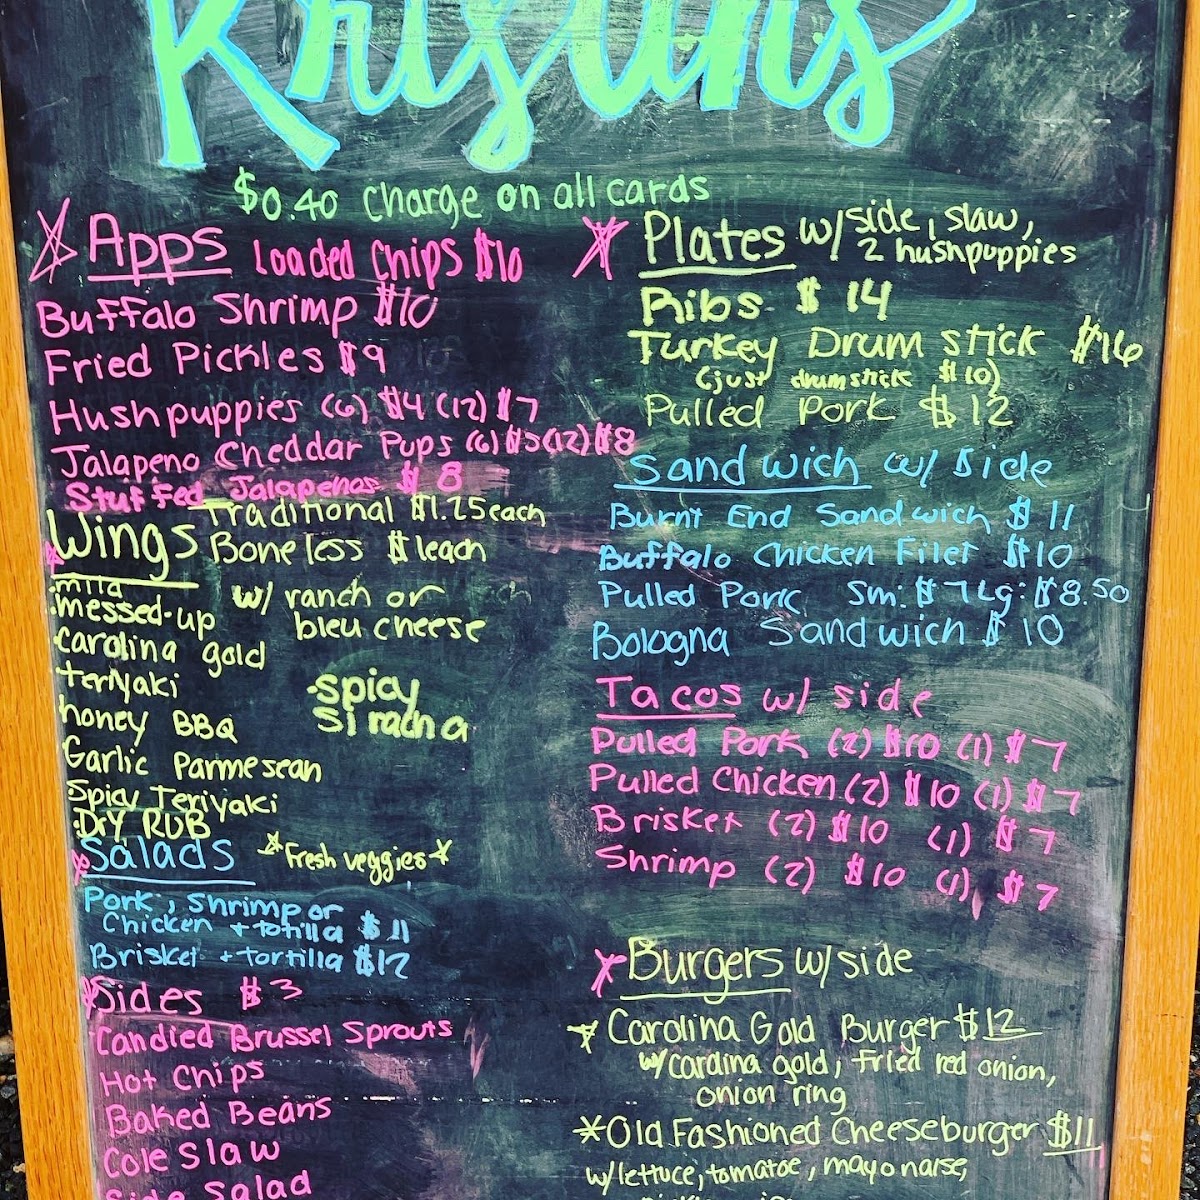 Kristins
$0.40 Charge on all cards
Apps Loaded Chips $10
Buffalo Shrimp $10
Fried Pickles $9
Hushpuppies (6) $4 (12) $7
Jalapeno Cheddar Pups (6) $5 (12) $8
Stuffed Jalapenos $8
Wings Traditional $1.25 each
Boneless $1 each
w/ ranch or
bleu cheese
.mild
.messed-up
.carolina gold
teriyaki
honey BBQ
Garlic Parmesean
.Spicy Teriyaki
.Dry RUB
.spicy
siracha
Salads *Fresh veggies*
Pork, shrimp or
Chicken + tortilla $11
Brisket + tortilla $12
Sides $3
Candied Brussel Sprouts
Hot Chips
Baked Beans
Cole Slaw
Side Salad
Plates w/ side, slaw,
2 hushpuppies
Ribs $14
Turkey Drum stick $16
(just drumstick $10)
Pulled Pork $12
Sandwich w/ Side
Burnt End Sandwich $11
Buffalo Chicken Filet $10
Pulled Pork Sm: $7 Lg: $8.50
Bologna Sandwich $10
Tacos w/ side
Pulled Pork (2) $10 (1) $7
Pulled Chicken (2) $10 (1) $7
Brisket (2) $10 (1) $7
Shrimp (2) $10 (1) $7
Burgers w/ side
* Carolina Gold Burger $12
w/ carolina gold, fried red onion,
onion ring
*Old Fashioned Cheeseburger $11
w/ lettuce, tomatoe, mayonaise,